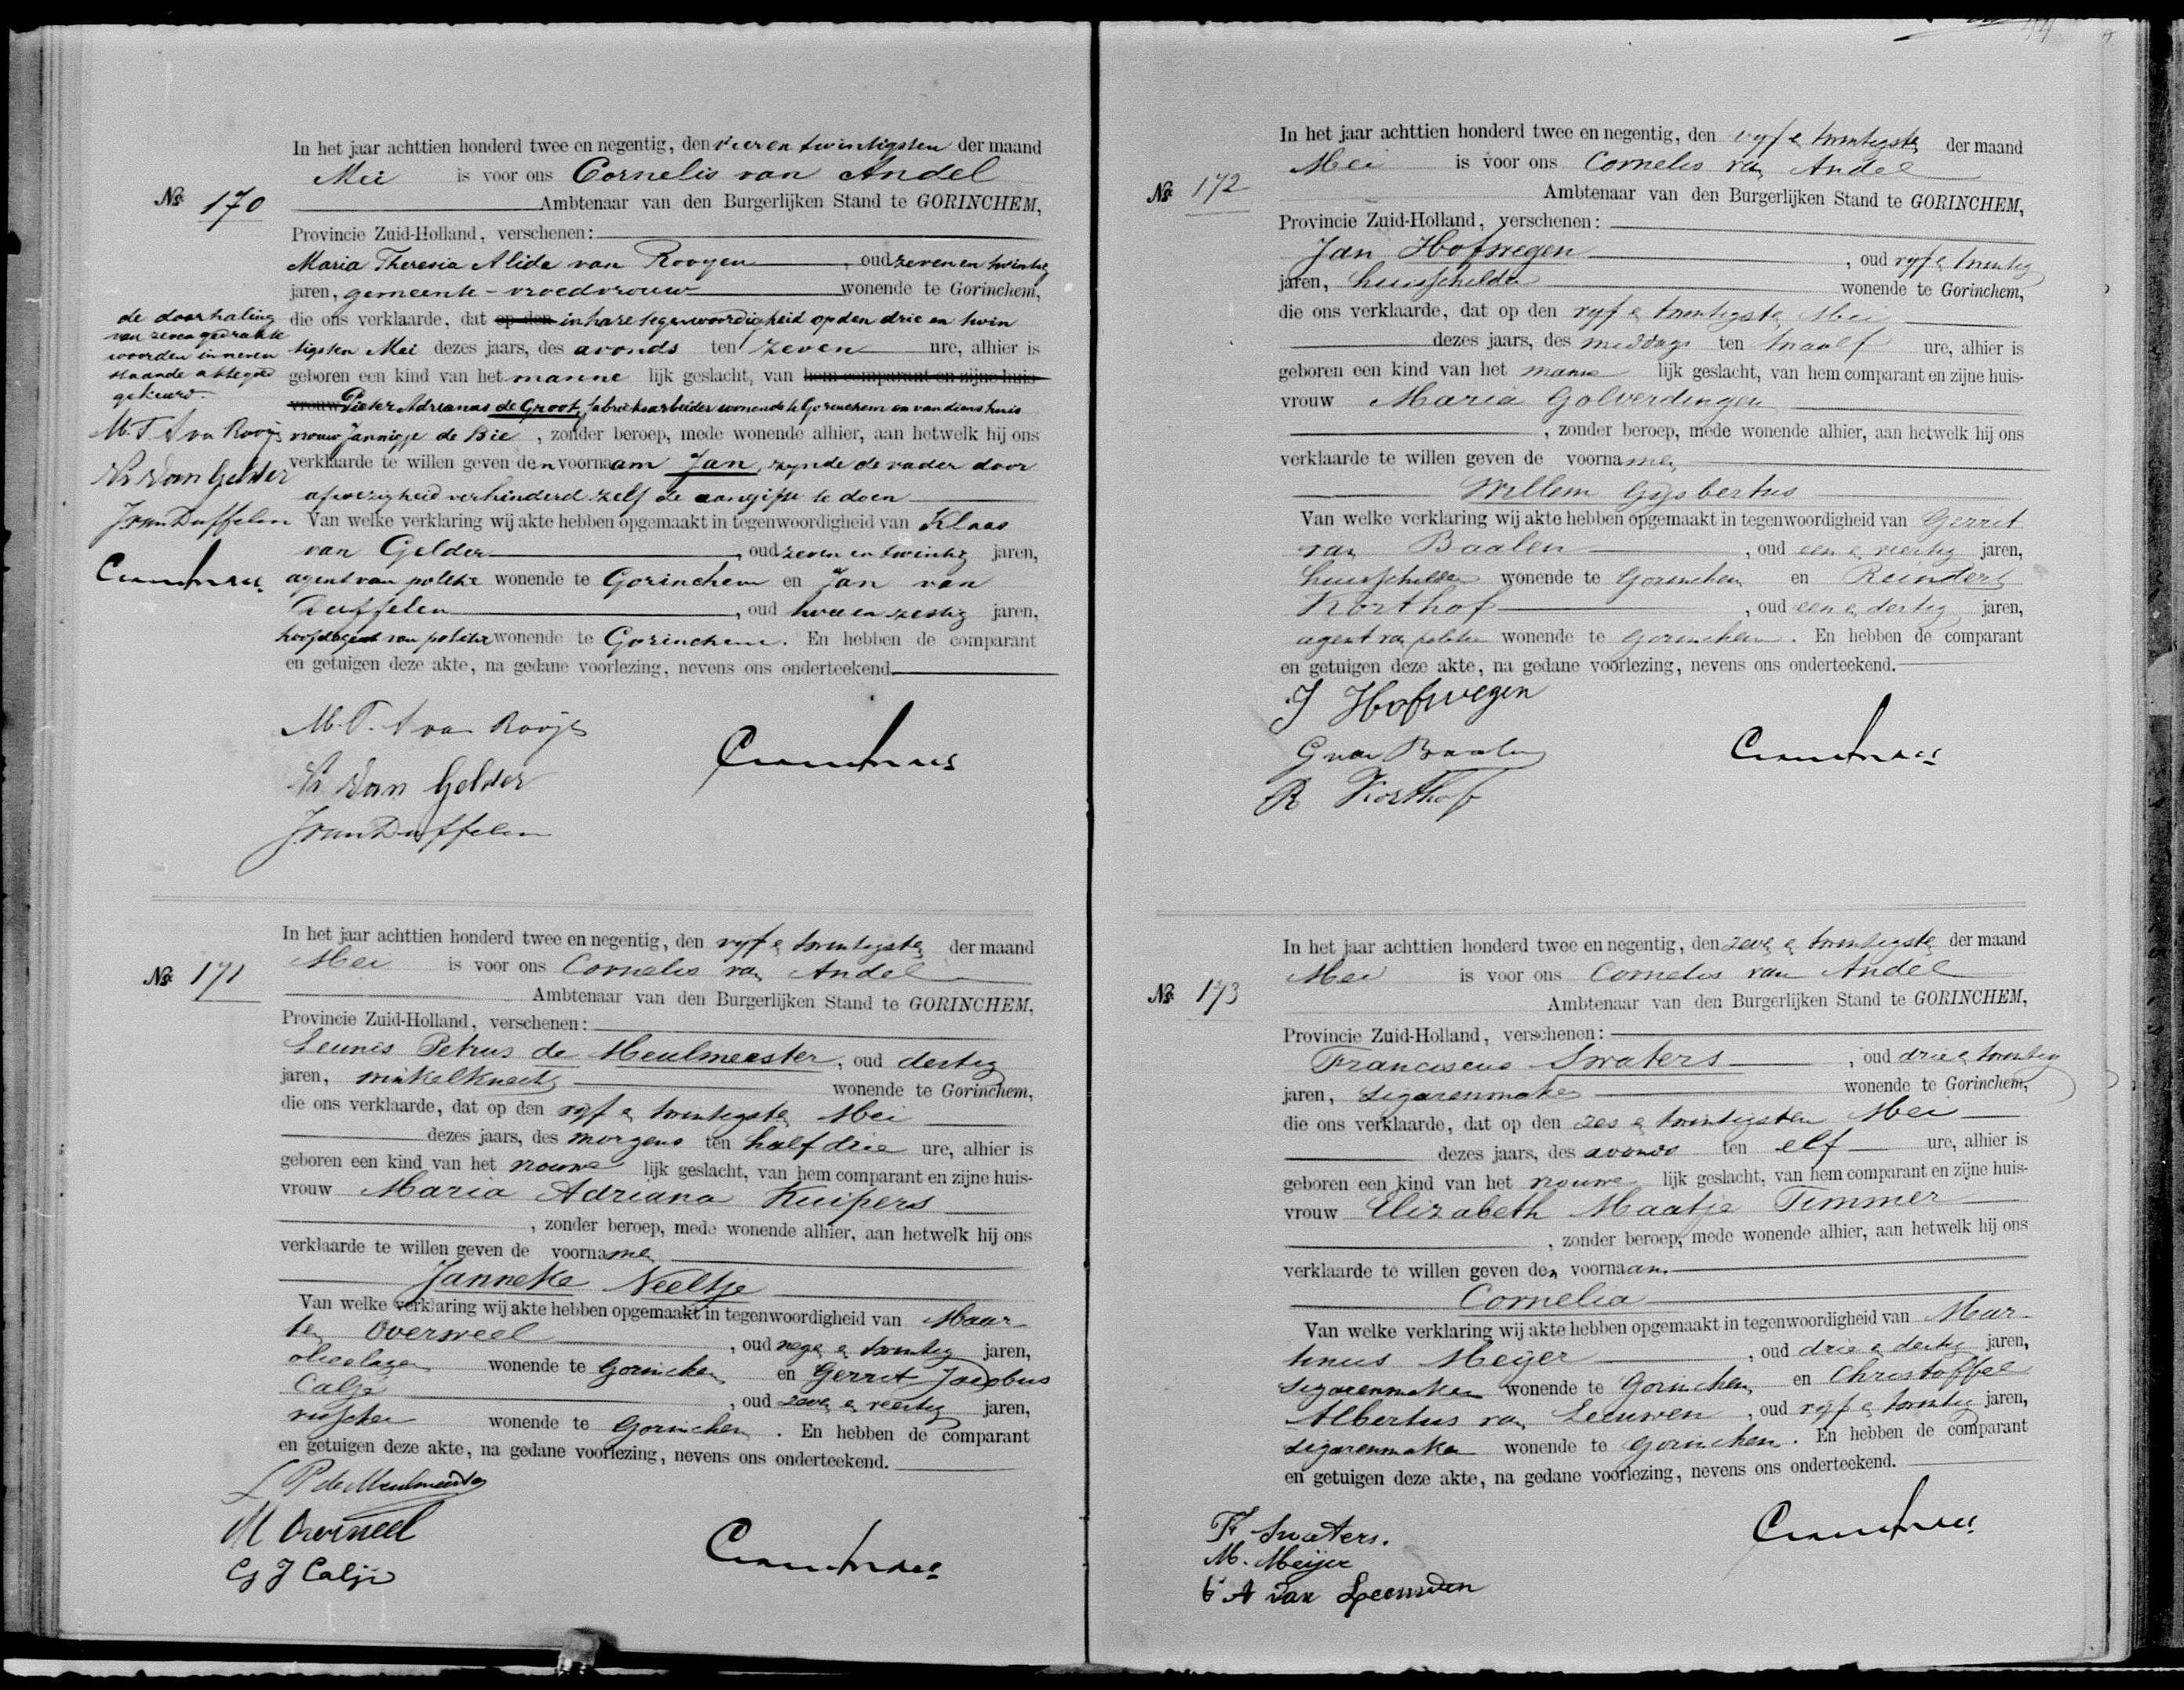 In het jaar achttien honderd twee en negentig, den vier en twintigsten der maand
Mei is voor ons Cornelis van Andel
Ambtenaar van den Burgerlijken Stand te GORINCHEM,
No. 170
Provincie Zuid-Holland, verschenen:
Maria Theresia Alida van Rooyen, oud zeven en twintig
jaren, gemeente-vroedvrouw wonende te Gorinchem,
die ons verklaarde, dat op den in hare tegenwoordigheid op den drie en twin
tigsten Mei dezes jaars, des avonds ten zeven ure, alhier is
geboren een kind van het manne lijk geslacht, van hem comparant en zijne huis-
vrouw Pieter Adrianus de Groot, fabrieksarbeider wonende te Gorinchem en van diens huis
vrouw Jannigje de Bie, zonder beroep, mede wonende alhier, aan hetwelk hij ons
verklaarde te willen geven den voornaam Jan, zynde de vader door
afwezigheid verhinderd zelf de aangifte te doen
Van welke verklaring wij akte hebben opgemaakt in tegenwoordigheid van Klaas
van Gelder, oud zeven en twintig jaren,
agent van politie wonende te Gorinchem en Jan van
Duffelen, oud twee en zestig jaren,
hoofdagent van politie wonende te Gorinchem. En hebben de comparant
en getuigen deze akte, na gedane voorlezing, nevens ons onderteekend.
de doorhaling
van zeven gedrukte
woorden in neven
staande akte goed
gekeurd.
M. T. A van Rooije
K. van Gelder
J van Duffelen
M. T. A van Rooije
K. van Gelder
J van Duffelen
In het jaar achttien honderd twee en negentig, den vyf en twintigsten der maand
Mei is voor ons Cornelis van Andel
Ambtenaar van den Burgerlijken Stand te GORINCHEM,
No. 171
Provincie Zuid-Holland, verschenen:
Leunis Petrus de Meulmeester, oud dertig
jaren, winkelknecht wonende te Gorinchem,
die ons verklaarde, dat op den vyf en twintigsten Mei
dezes jaars, des morgens ten half drie ure, alhier is
geboren een kind van het vrouwe lijk geslacht, van hem comparant en zijne huis-
vrouw Maria Adriana Kuipers
, zonder beroep, mede wonende alhier, aan hetwelk hij ons
verklaarde te willen geven de voornamen
Janneke Neeltje
Van welke verklaring wij akte hebben opgemaakt in tegenwoordigheid van Maar-
ten Overweel, oud negen en twintig jaren,
olieslager wonende te Gorinchem en Gerrit Jacobus
Calje, oud zeven en veertig jaren,
visscher wonende te Gorinchem. En hebben de comparant
en getuigen deze akte, na gedane voorlezing, nevens ons onderteekend.
L P de Meulmeester
M Overweel
G J Calje
In het jaar achttien honderd twee en negentig, den vyf en twintigsten der maand
Mei is voor ons Cornelis van Andel
Ambtenaar van den Burgerlijken Stand te GORINCHEM,
No. 172
Provincie Zuid-Holland, verschenen:
Jan Hofwegen, oud vyf en twintig
jaren, huisschilder wonende te Gorinchem,
die ons verklaarde, dat op den vyf en twintigsten Mei
dezes jaars, des middags ten twaalf ure, alhier is
geboren een kind van het manne lijk geslacht, van hem comparant en zijne huis-
vrouw Maria Golverdingen
, zonder beroep, mede wonende alhier, aan hetwelk hij ons
verklaarde te willen geven de voornamen
Willem Gysbertus
Van welke verklaring wij akte hebben opgemaakt in tegenwoordigheid van Gerrit
van Baalen, oud een en veertig jaren,
huisschilder wonende te Gorinchem en Reindert
Korthof, oud een en dertig jaren,
agent van politie wonende te Gorinchem. En hebben de comparant
en getuigen deze akte, na gedane voorlezing, nevens ons onderteekend.
J Hofwegen
G van Baalen
R Korthof
In het jaar achttien honderd twee en negentig, den zeven en twintigsten der maand
Mei is voor ons Cornelis van Andel
Ambtenaar van den Burgerlijken Stand te GORINCHEM,
No. 173
Provincie Zuid-Holland, verschenen:
Franciscus Swaters, oud drie en twintig
jaren, sigarenmaker wonende te Gorinchem,
die ons verklaarde, dat op den zes en twintigsten Mei
dezes jaars, des avonds ten elf ure, alhier is
geboren een kind van het vrouwe lijk geslacht, van hem comparant en zijne huis-
vrouw Elizabeth Maatje Timmer
, zonder beroep, mede wonende alhier, aan hetwelk hij ons
verklaarde te willen geven den voornaam
Cornelia
Van welke verklaring wij akte hebben opgemaakt in tegenwoordigheid van Mar-
tinus Meyer, oud drie en dertig jaren,
sigarenmaker wonende te Gorinchem en Christoffel
Albertus van Leeuwen, oud vyf en twintig jaren,
sigarenmaker wonende te Gorinchem. En hebben de comparant
en getuigen deze akte, na gedane voorlezing, nevens ons onderteekend.
F Swaters.
M. Meijer
C A van Leeuwen